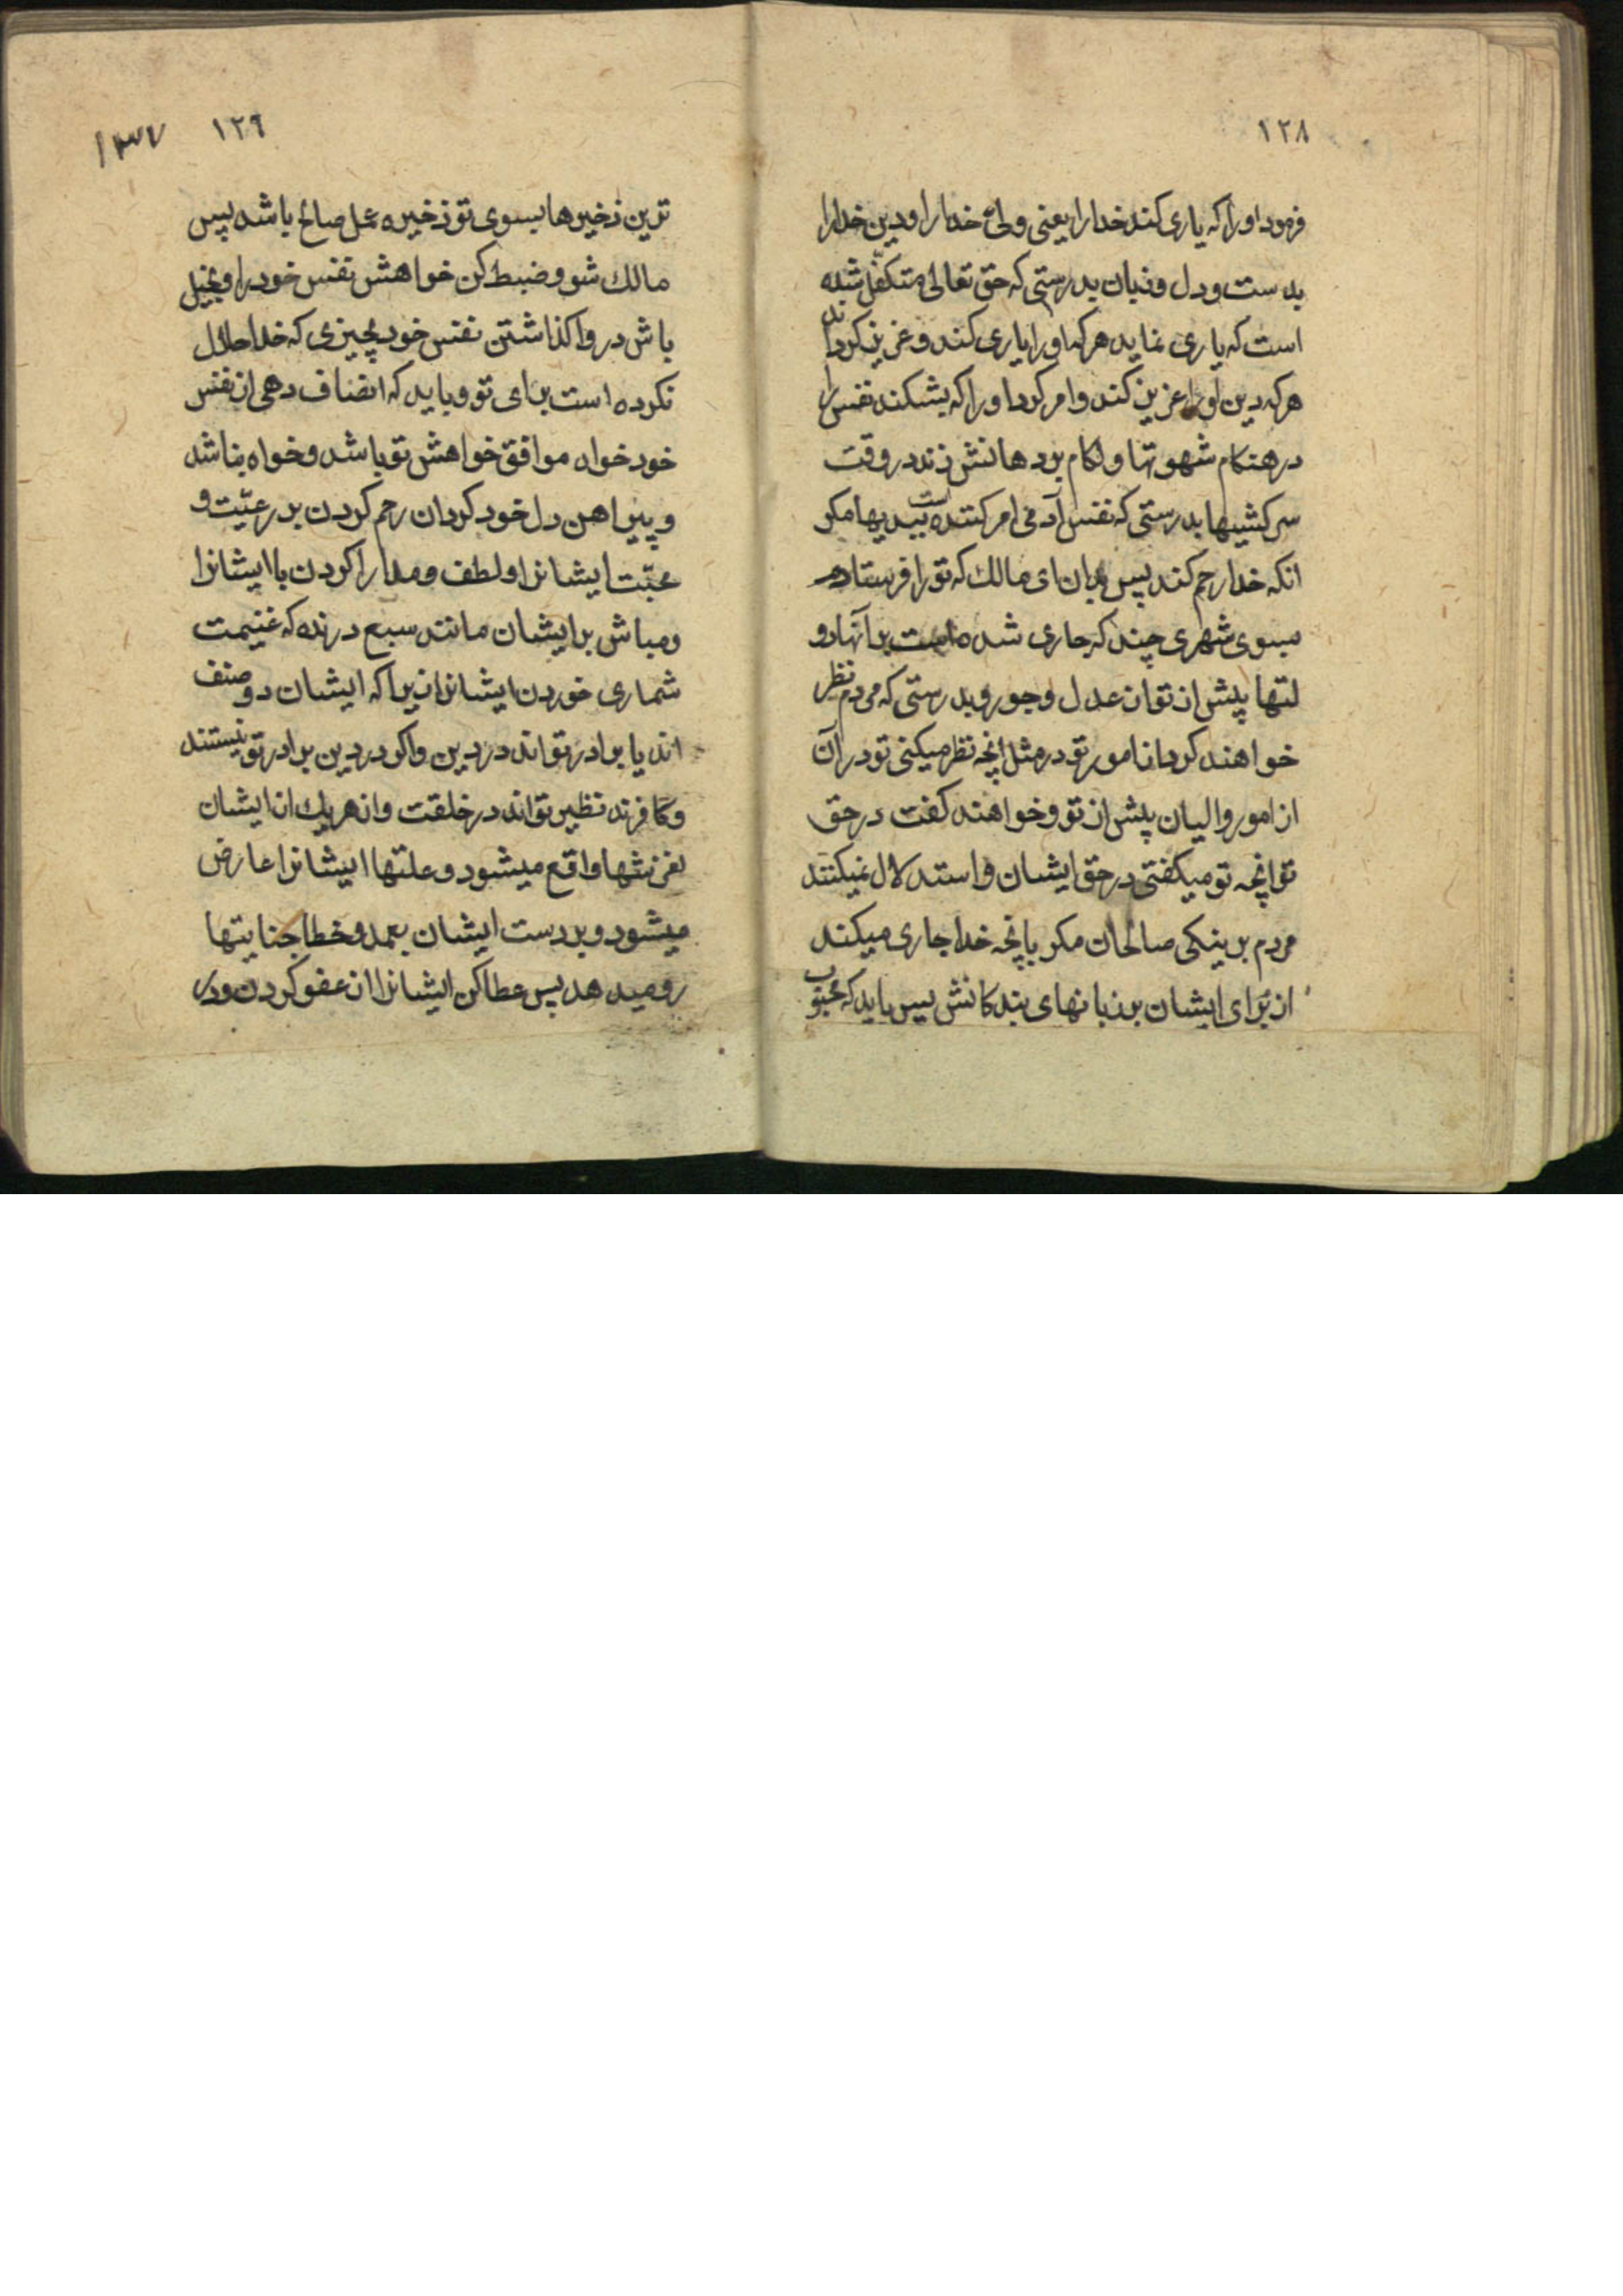 ۱۲۸
فرمود او را که یاری کند خدا را یعنی ولیّ خدا را و دین خدا را
بدست و دل و زبان بدرستی که حق تعالی متکفل شده
است که یاری نماید هر که او را یاری کند و عزیز کرداند
هر که دین او را عزیز کند و امر کرد او را که بشکند نفس را
در هنکام شهوتها و لکام بر دهانش زند در وقت
سرکشیها بدرستی که نفس آدمی امر کننده است ببدیها مکر
انکه خدا رحم کند پس بدان ای مالک که تو را فرستادم
بسوی شهری چند که جاری شده است بر آنها دو
لتها پیش از تو از عدل و جور و بدرستی که مردم نظر
خواهند کرد از امور تو در مثل انچه نظر میکنی تو در آن
از امور والیان پیش از تو و خواهند کفت در حق
تو انچه تو میکفتی در حق ایشان و استدلال نمیکنند
مردم بر نیکی صالحان مکر بانچه خدا جاری میکند
از برای ایشان بر زبانهای بندکانش پس باید که محبوب
۱۲۹ ۱۳۷
ترین ذخیرها بسوی تو ذخیره عمل صالح باشد پس
مالک شو و ضبط کن خواهش نفس خود را و بخیل
باش در واکذاشتن نفس خود بچیزی که خدا حلال
نکرده است برای تو و باید که انصاف دهی از نفس
خود خواه موافق خواهش تو باشد و خواه نباشد
و پیراهن دل خود کردان رحم کردن بر رعیّت و
محبّت ایشانرا و لطف و مدارا کردن با ایشانرا
و مباش بر ایشان مانند سبع درنده که غنیمت
شماری خوردن ایشانرا زیرا که ایشان دو صنف
اند یا برادر تواند در دین و اکر در دین برادر تو نیستند
و کافرند نظیر تواند در خلقت و از هر یک از ایشان
لغزشها واقع میشود و علتها ایشانرا عارض
میشود و بر دست ایشان بعمد و خطا جنایتها
رو میدهد پس عطا کن ایشانرا از عفو کردن و در